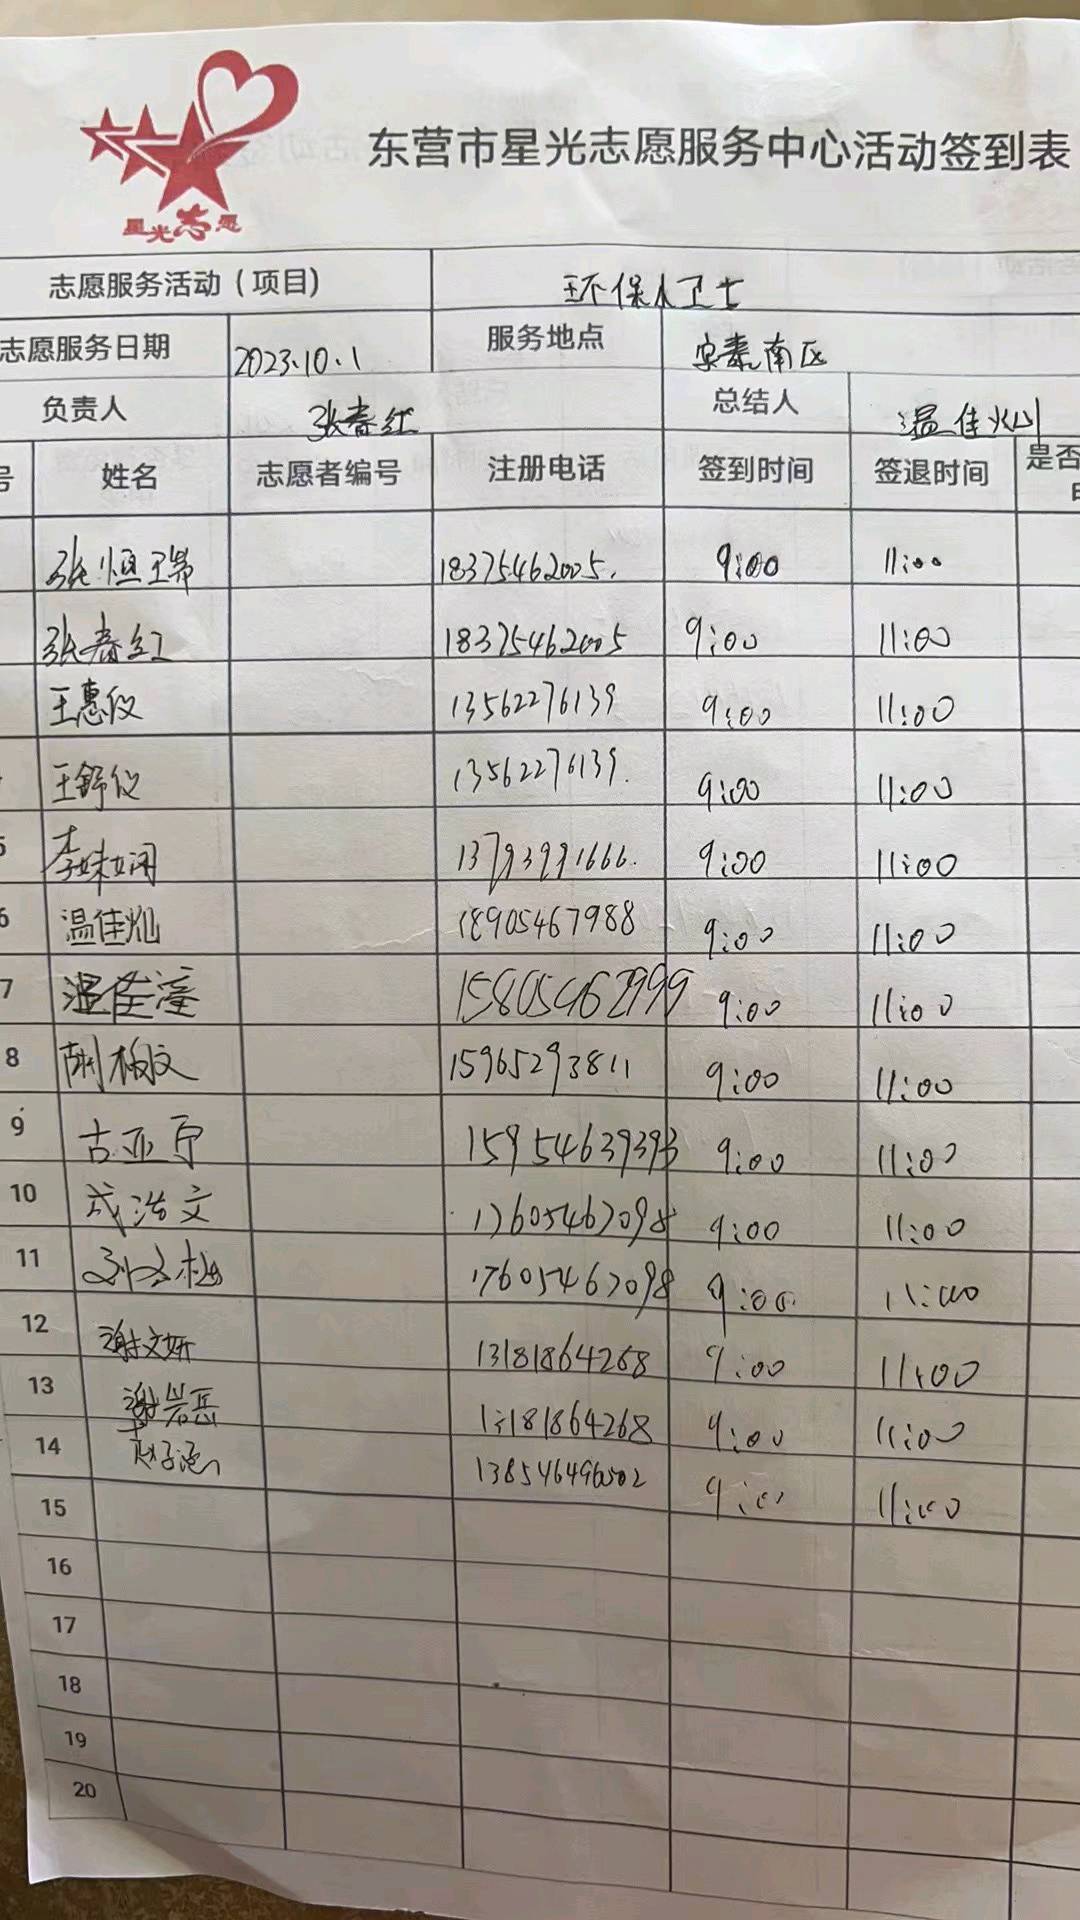 东营市星光志愿服务中心活动签到表
星光志愿
志愿服务活动（项目) 环保小卫士
志愿服务日期 2023.10.1 服务地点 安泰南区
负责人 张春红 总结人 温佳灿
号 姓名 志愿者编号 注册电话 签到时间 签退时间 是否
张恒瑞 18375462005. 9:00 11:00
张春红 18375462005 9:00 11:00
王惠仪 13562276139 9:00 11:00
王舒仪 13562276139. 9:00 11:00
5 李姝娴 13793991666. 9:00 11:00
6 温佳灿 18905467988 9:00 11:00
7 温佳滢 15805462999 9:00 11:00
8 胡板文 15965293811 9:00 11:00
9 古亚宁 15954639393 9:00 11:00
10 成浩文 17605467098 9:00 11:00
11 17605467098 9:00 11:00
12 谢文妍 13181864268 9:00 11:00
13 谢岩岳 13181864268 9:00 11:00
14 赵子涵 9:00 11:00
15
16
17
18
19
20